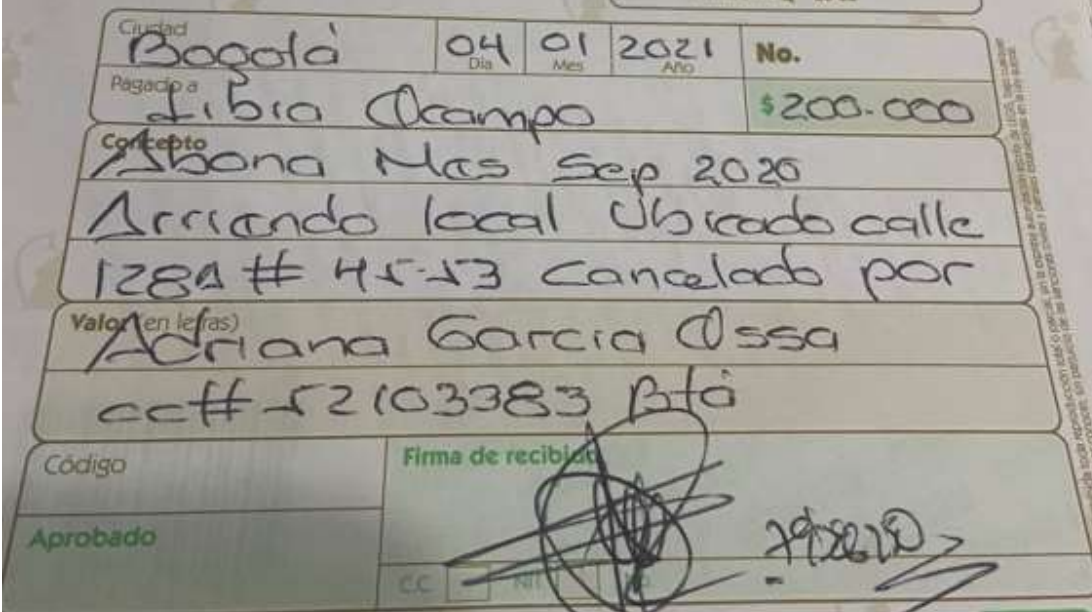 Ciudad
Bogotá 04 01 2021 No.
Día Mes Año
Pagado a
Libia Ocampo $200.000
Concepto
Abona Mes Sep 2020
Arriendo local Ubicado calle
128A # 45-53 Cancelado por
Valor (en letras)
Adriana Garcia Ossa
cc# 52103383 Btá
Código
Firma de recibido
Aprobado
C.C. NIT